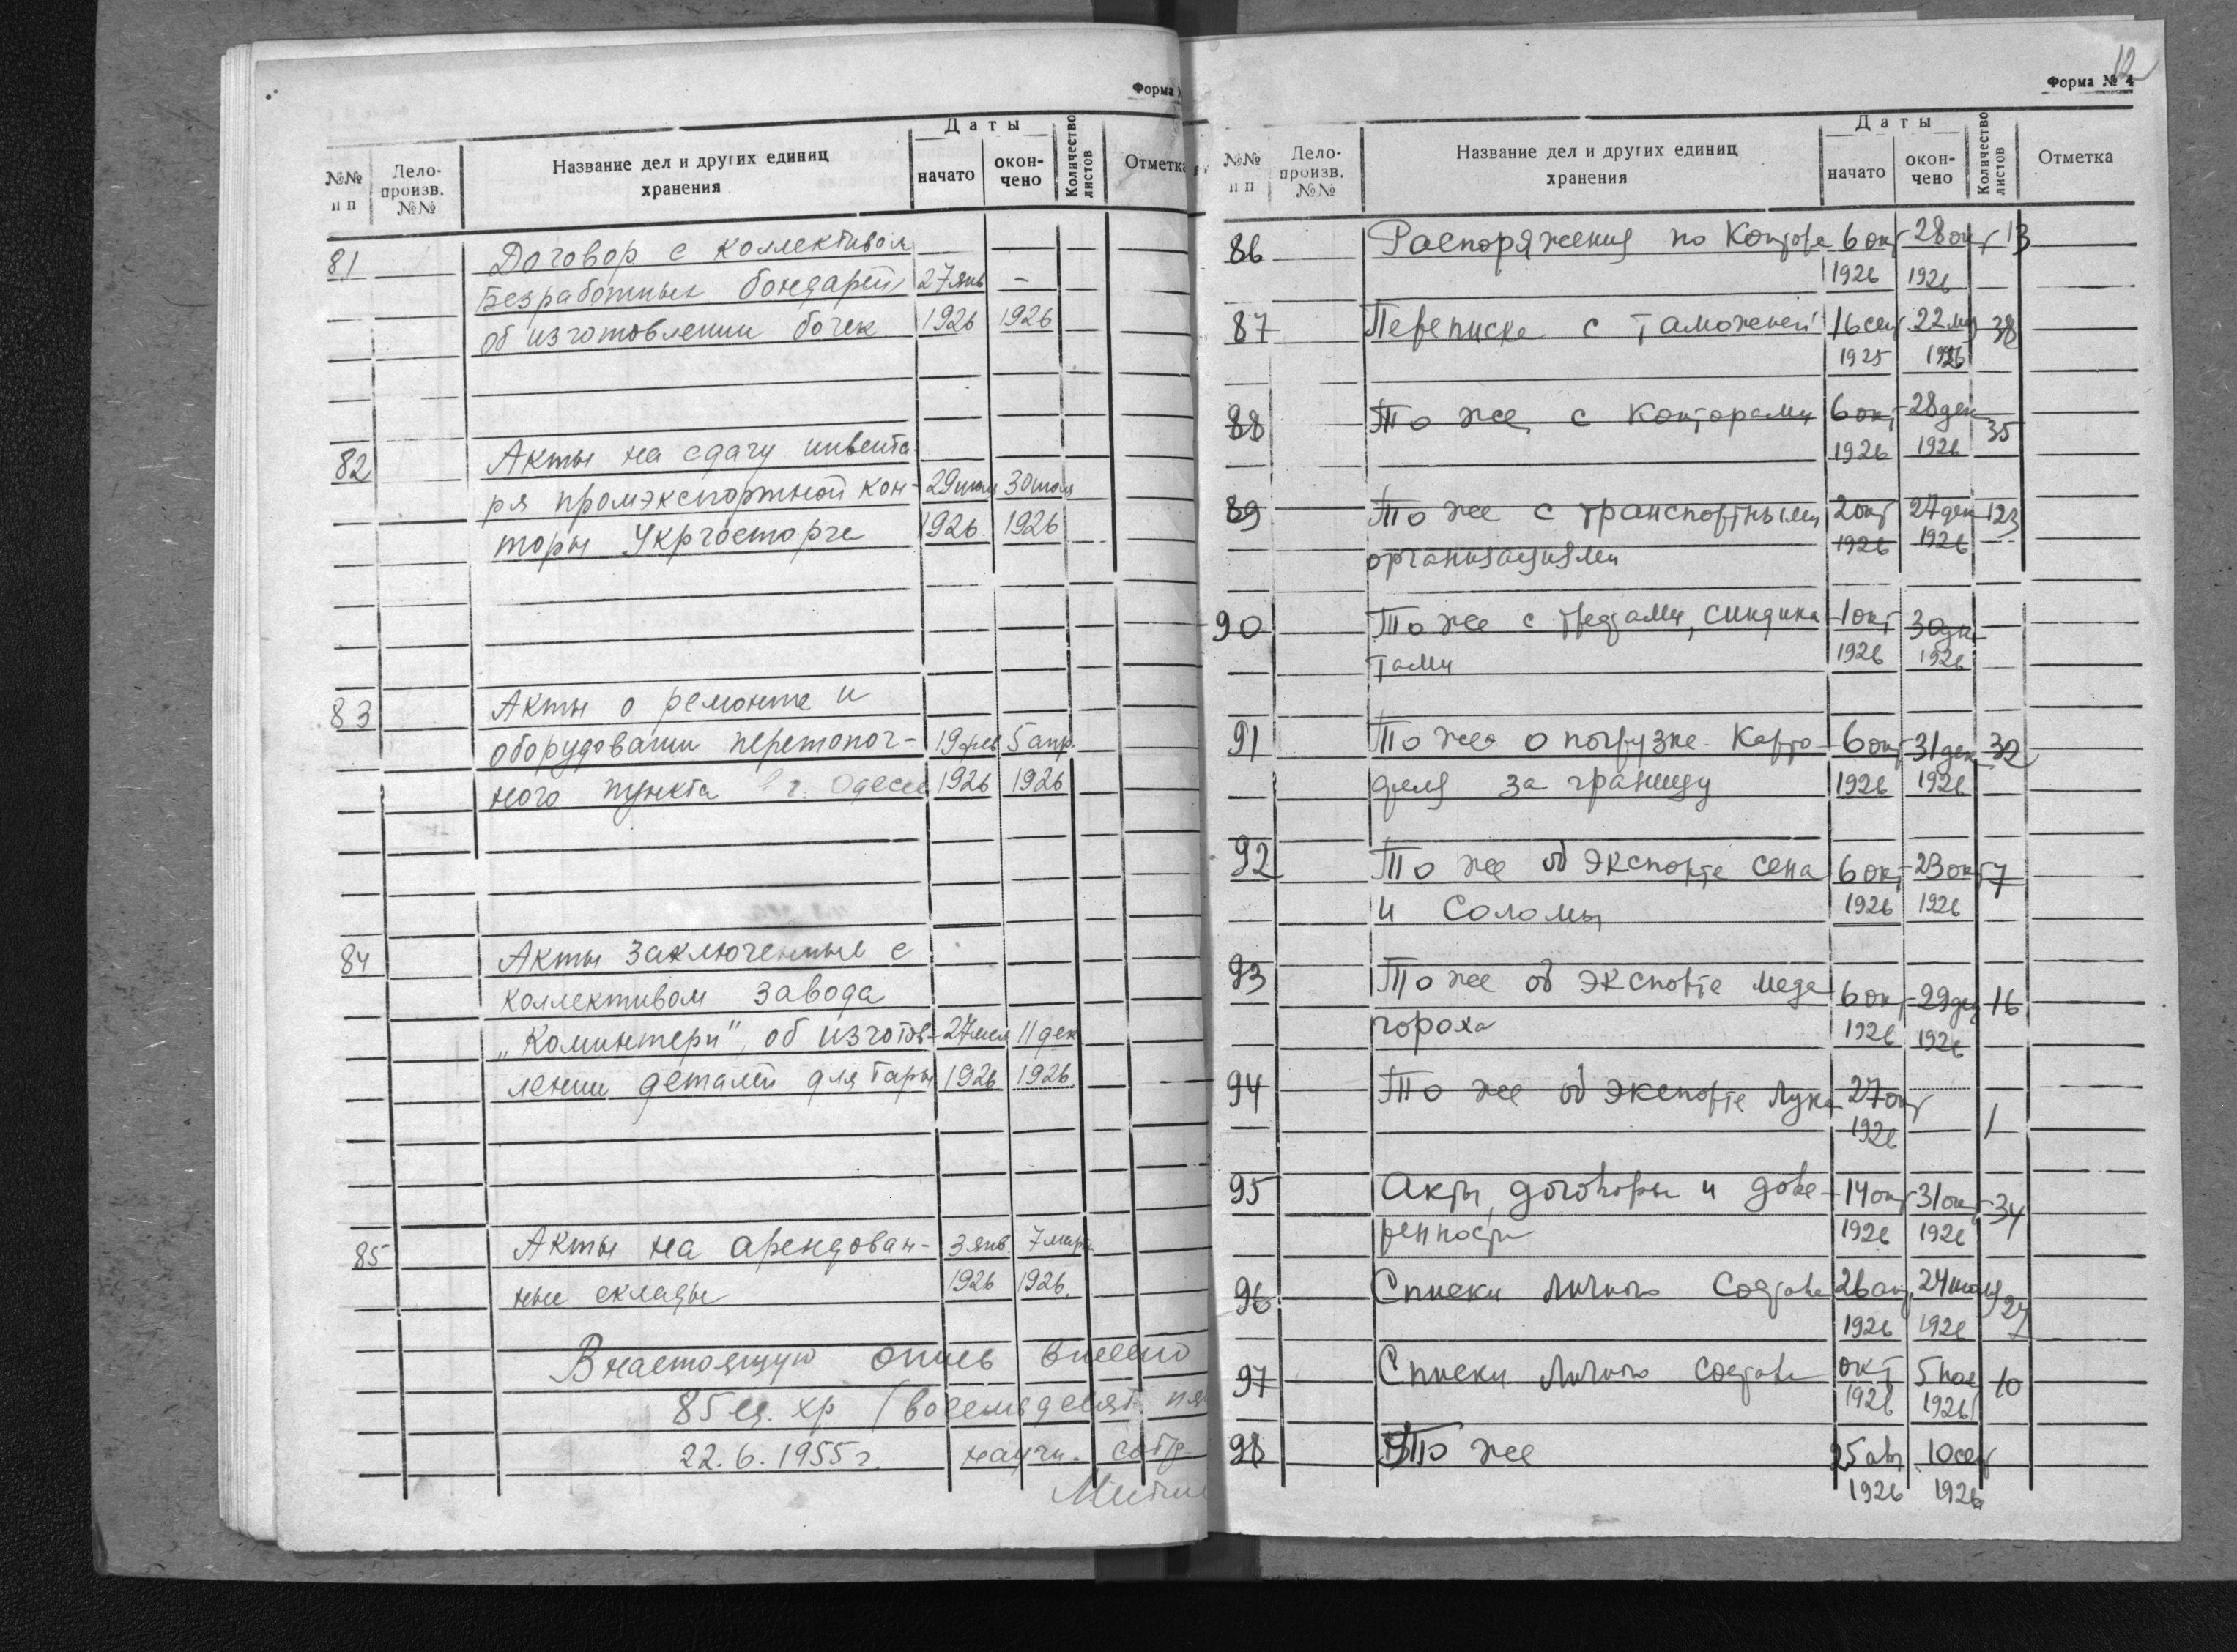 Форма №
№№ п п
Дело-произв. №№
Название дел и других единиц хранения
Даты
начато
окон-чено
Количество листов
Отметка
81 Договор с коллективом
безработных бондарей 27 янв -
об изготовлении бочек 1926 1926
82 Акты на сдачу инвента-
ря промэкспортной кон- 29 июля 30 июля
торы Укргосторга 1926. 1926
83 Акты о ремонте и
оборудовании перетопоч- 19 фев 5 апр.
ного пункта в г. Одессе 1926 1926
84 Акты заключенные с
коллективом завода
„Коминтерн", об изготов- 11 дек
лении деталей для тары 1926 1926.
85 Акты на арендован- 3 янв. 7 марта
ные склады 1926 1926.
В настоящую опись внесено
85 ед. хр (восемьдесят пя
22.6.1955 г. научн. сотр.
12
Форма № 4
№№ п п
Дело-произв. №№
Название дел и других единиц хранения
Даты
начато
окон-чено
Количество листов
Отметка
86 Распоряжения по Конторе 6 окт 28 окт 13
1926 1926
87 Переписка с таможней 16 сент 38
1925 1926
88 То же с конторами 6 окт 28 дек 35
1926 1926
89 То же с транспортными 2 окт 27 дек 123
организациями 1926 1926
90 То же с трестами, синдика- 1 окт 30 дек
тами 1926 1926
91 То же о погрузке карто- 6 окт 31 дек 32
феля за границу 1926 1926
92 То же об экспорте сена 6 окт 23 окт 7
и соломы 1926 1926
93 То же об экспорте меда 6 окт 29 дек 16
гороха 1926 1926
94 То же об экспорте лука 27 окт
1926 1
95 Акты, договоры и дове- 14 окт 31 окт 34
ренности 1926 1926
96 Списки личного состава 24 июля 27
1926 1926
97 Списки личного состава окт 5 ноя 10
1926 1926
98 То же 25 авг 10 сент
1926 1926